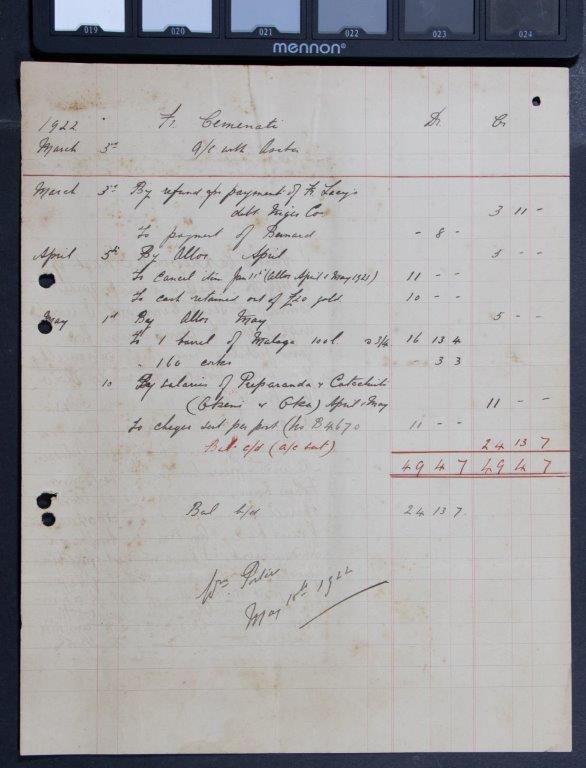 019 020 021 022 023 024
mennon®
1922 Fr. Cementi Dr. Cr
March 3rd a/c with Asaba
March 3rd By refund of payment of Fr Lacy's
debt Niger Co 3 11 -
To payment of Bernard - 8 -
April 5th By Allow April 5 - -
To Cancel item Jan 11th (Allow April & May 1921) 11 - -
To cash retained out of £20 gold 10 - -
May 1st By Allow May 5 - -
To 1 barrel of Malaga 100 l 3/4 16 13 4
" 160 corks - 3 3
10 By salaries of Preparanda & Catechist
(Okeni & Oka) April & May 11 - -
To cheque sent per post (No B4670 11 - -
Bal c/d (a/c sent) 24 13 7
49 4 7 49 4 7
Bal b/d 24 13 7
Wm. Porter
May 10th 1922